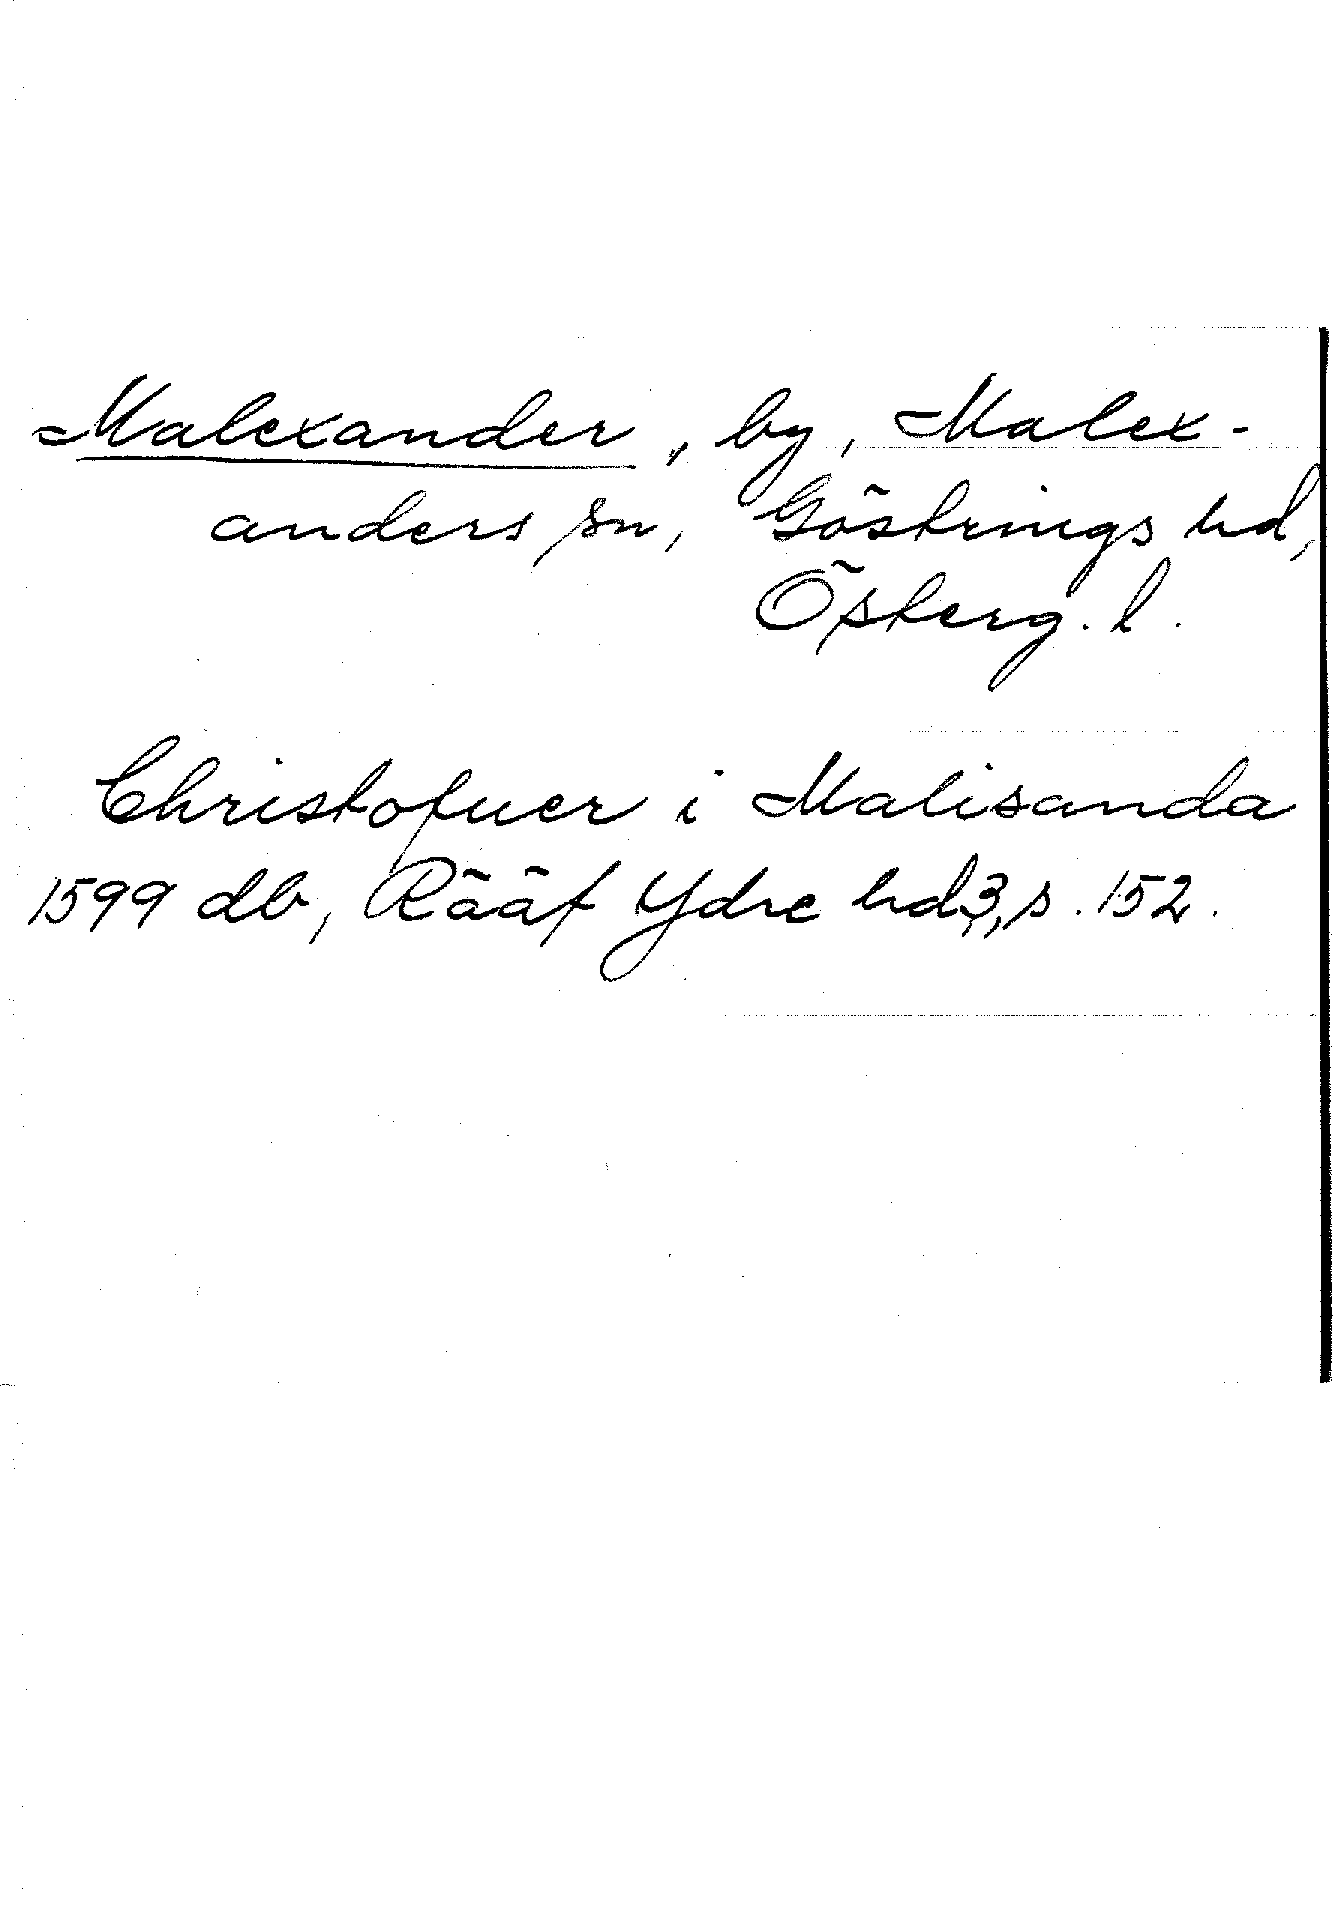 Malexander, by, Malex-
anders sn, Göstrings hd,
Österg. l.
Christofuer i Malisanda
1599 db, Rääf Ydre hd, 3, s. 152.